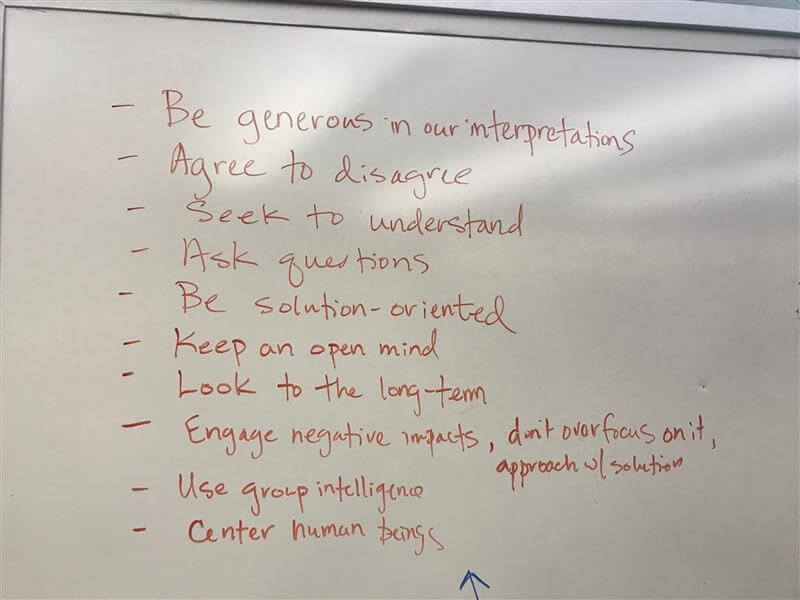 - Be generous in our interpretations
- Agree to disagree
- Seek to understand
- Ask questions
- Be solution-oriented
- Keep an open mind
- Look to the long-term
- Engage negative impacts, don't overfocus on it,
approach w/ solution
- Use group intelligence
- Center human beings